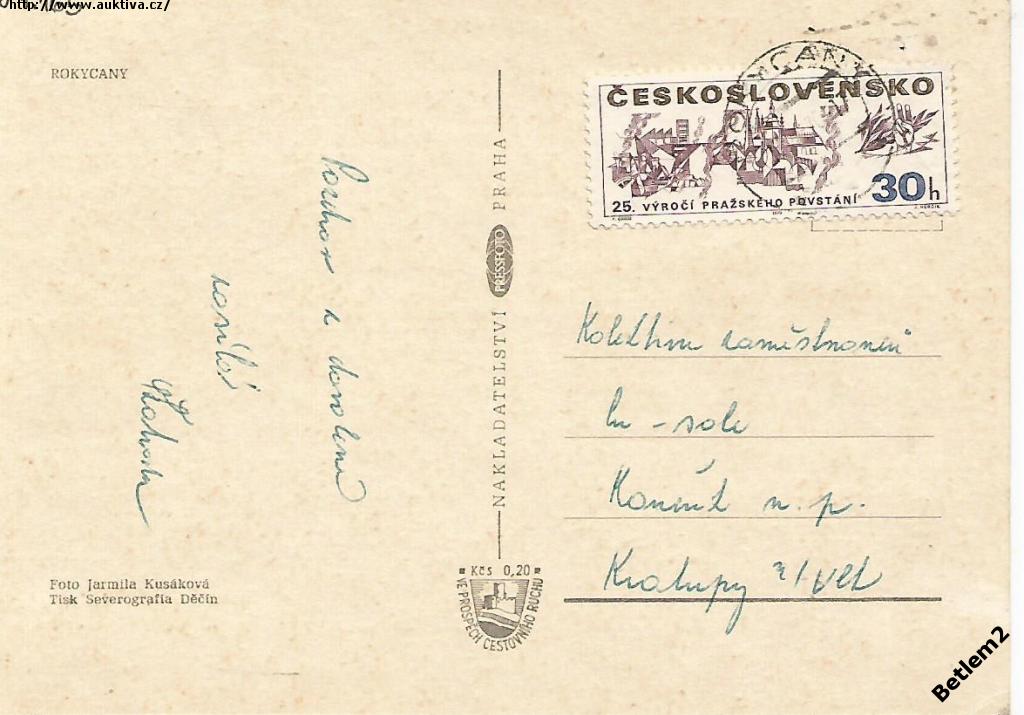 http://www.auktiva.cz/
ROKYCANY
Pozdrav z dovolené
zasílá
Foto Jarmila Kusáková
Tisk Severografia Děčín
NAKLADATELSTVÍ PRESSFOTO PRAHA
Kčs 0,20
VE PROSPĚCH CESTOVNÍHO RUCHU
ROKYCANY
ČESKOSLOVENSKO
30h
25. VÝROČÍ PRAŽSKÉHO POVSTÁNÍ
Kolektiv zaměstnanců
n. p.
Kralupy n/Vlt
Betlem2